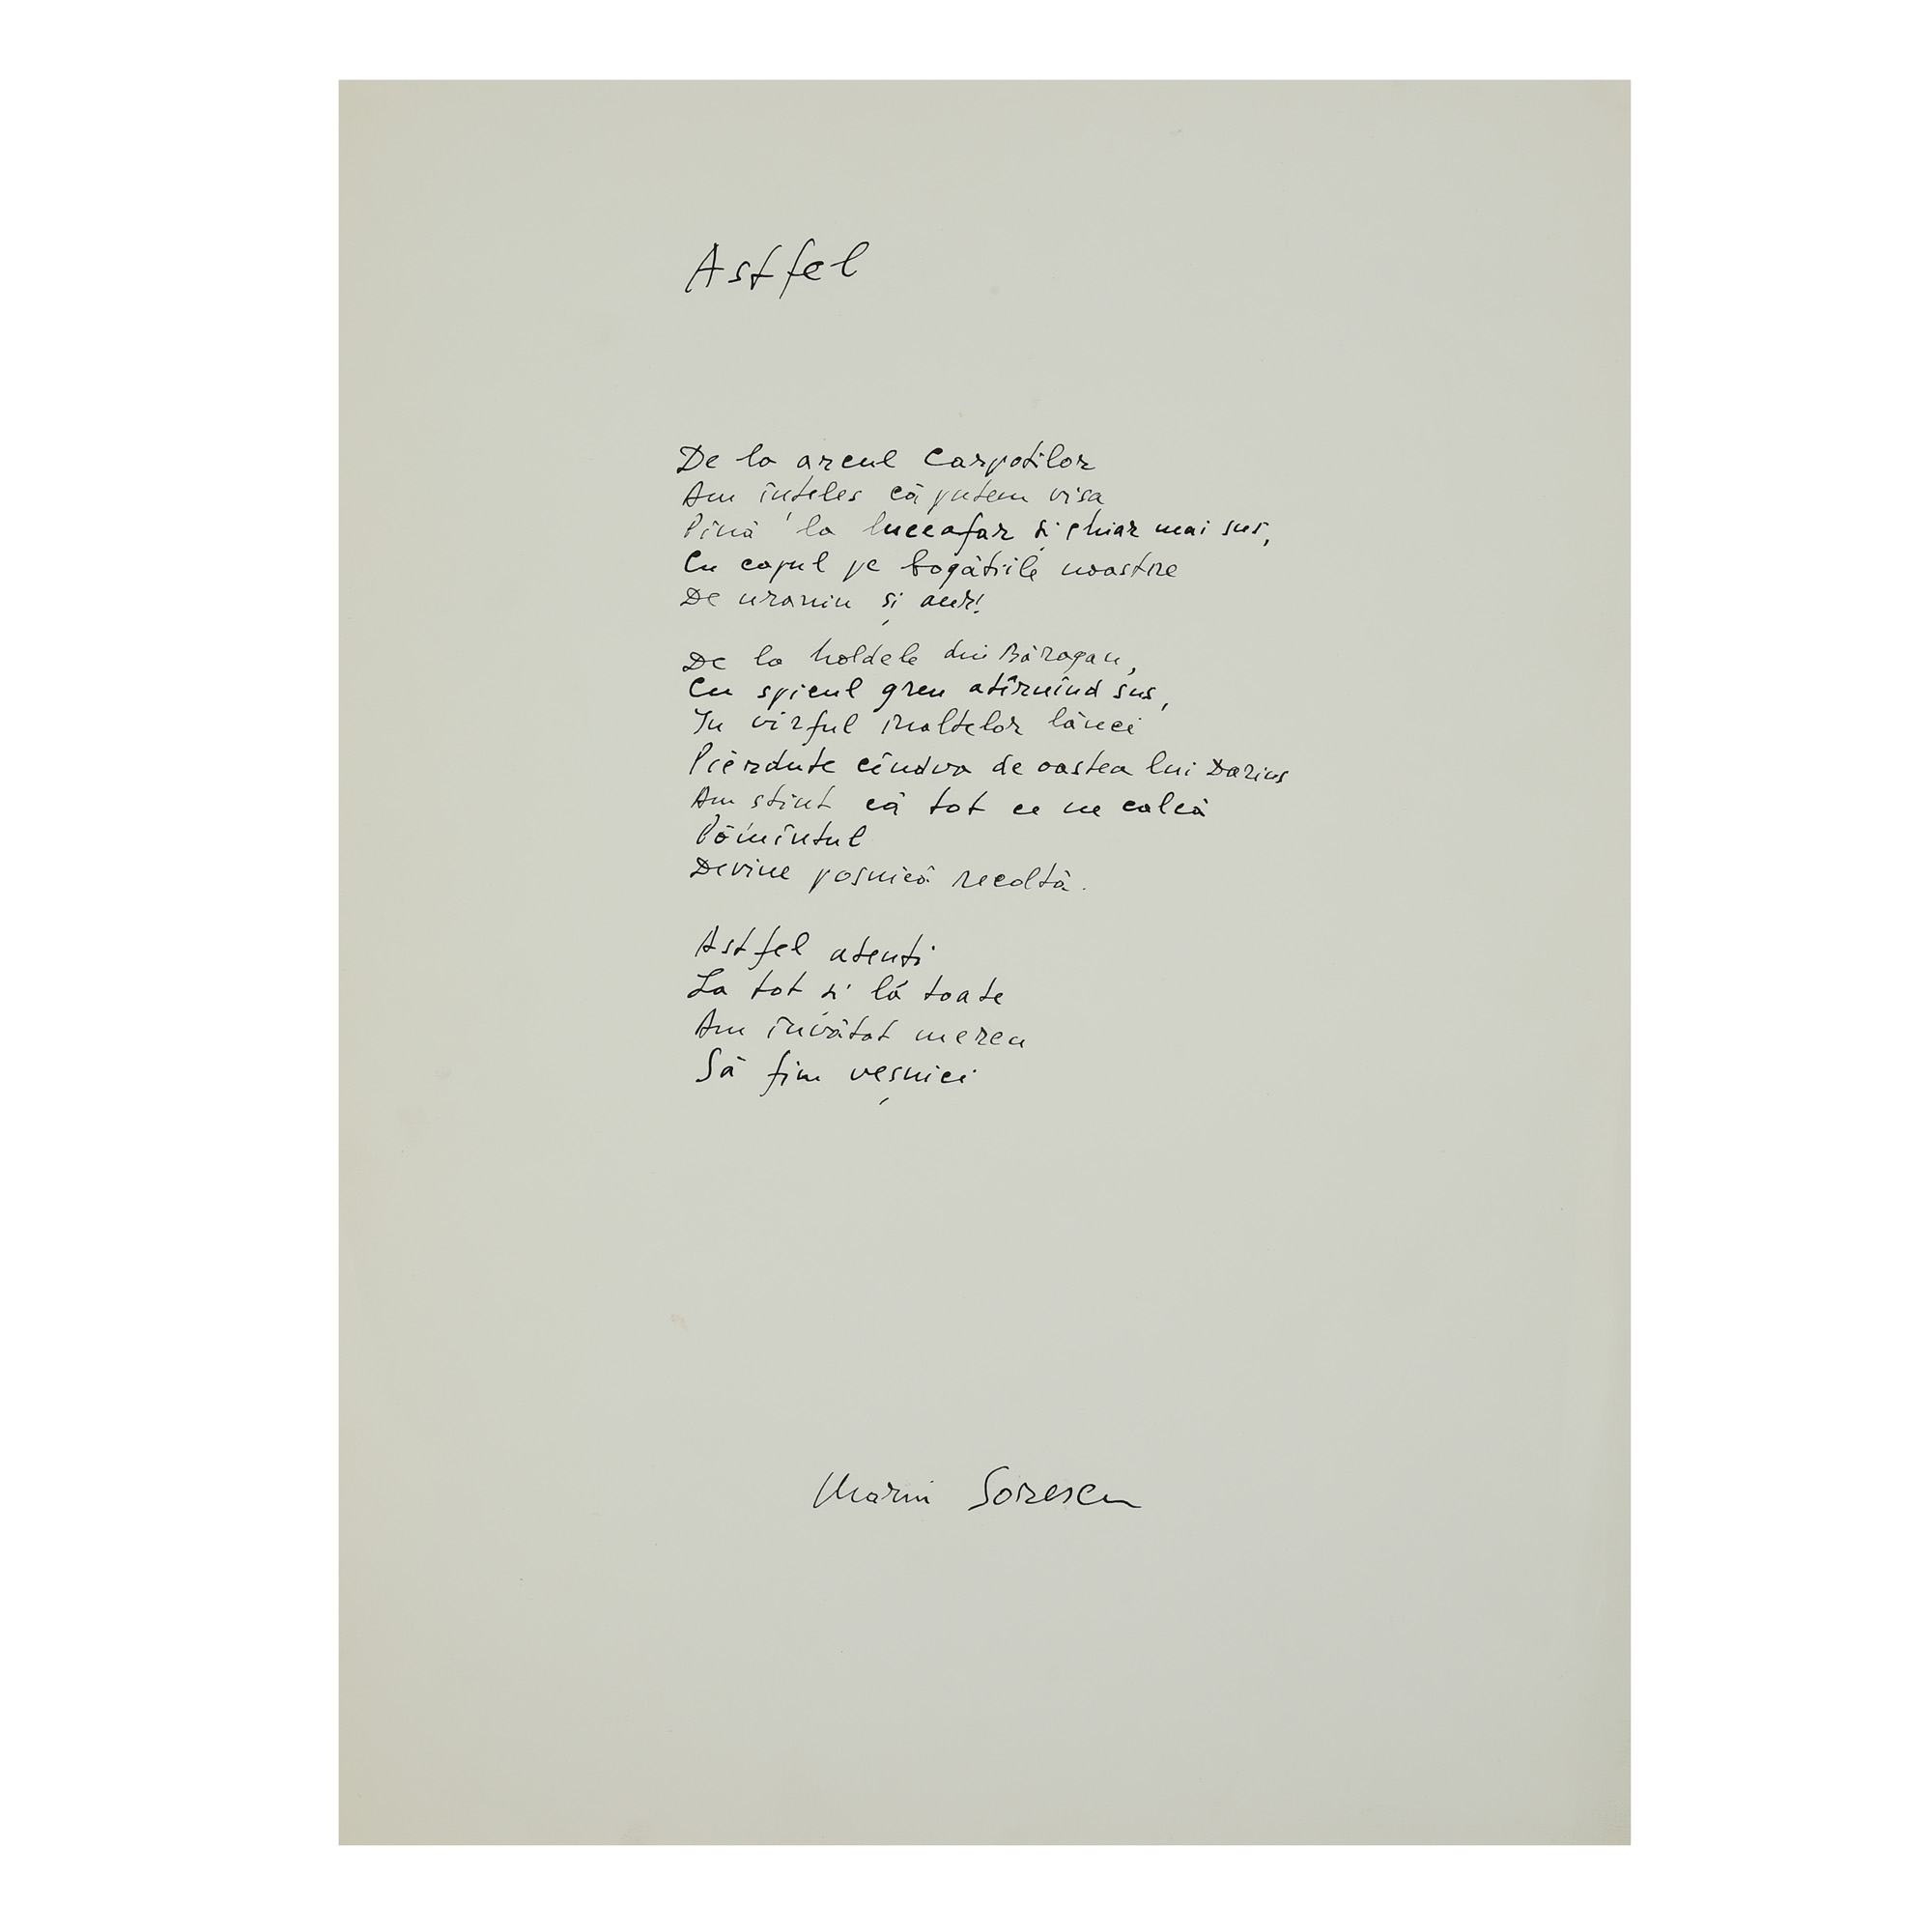 Astfel
De la arcul Carpaților
Am înțeles că putem visa
Pînă la luceafar și chiar mai sus,
Cu capul pe bogățiile noastre
De uraniu și aur!
De la holdele din Bărăgan,
Cu spicul greu atîrnînd sus,
In vîrful inaltelor lănci
Pierdute cîndva de oastea lui Darius
Am știut că tot ce ne calcă
Pămîntul
Devine pașnică recoltă.
Astfel atenți
La tot și la toate
Am învățat mereu
Să fim veșnici
Marin Sorescu